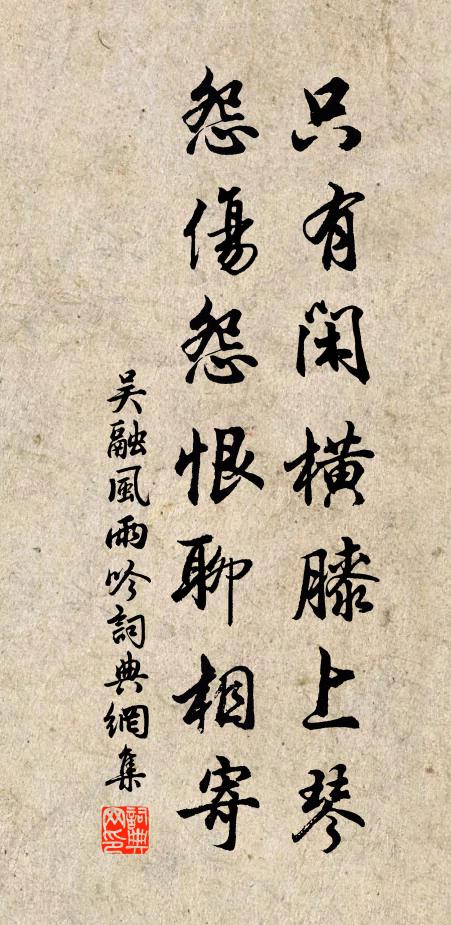 只有闲橫膝上琴
怨傷怨恨聊相寄
吴融風雨吟詞典網集
詞典網印